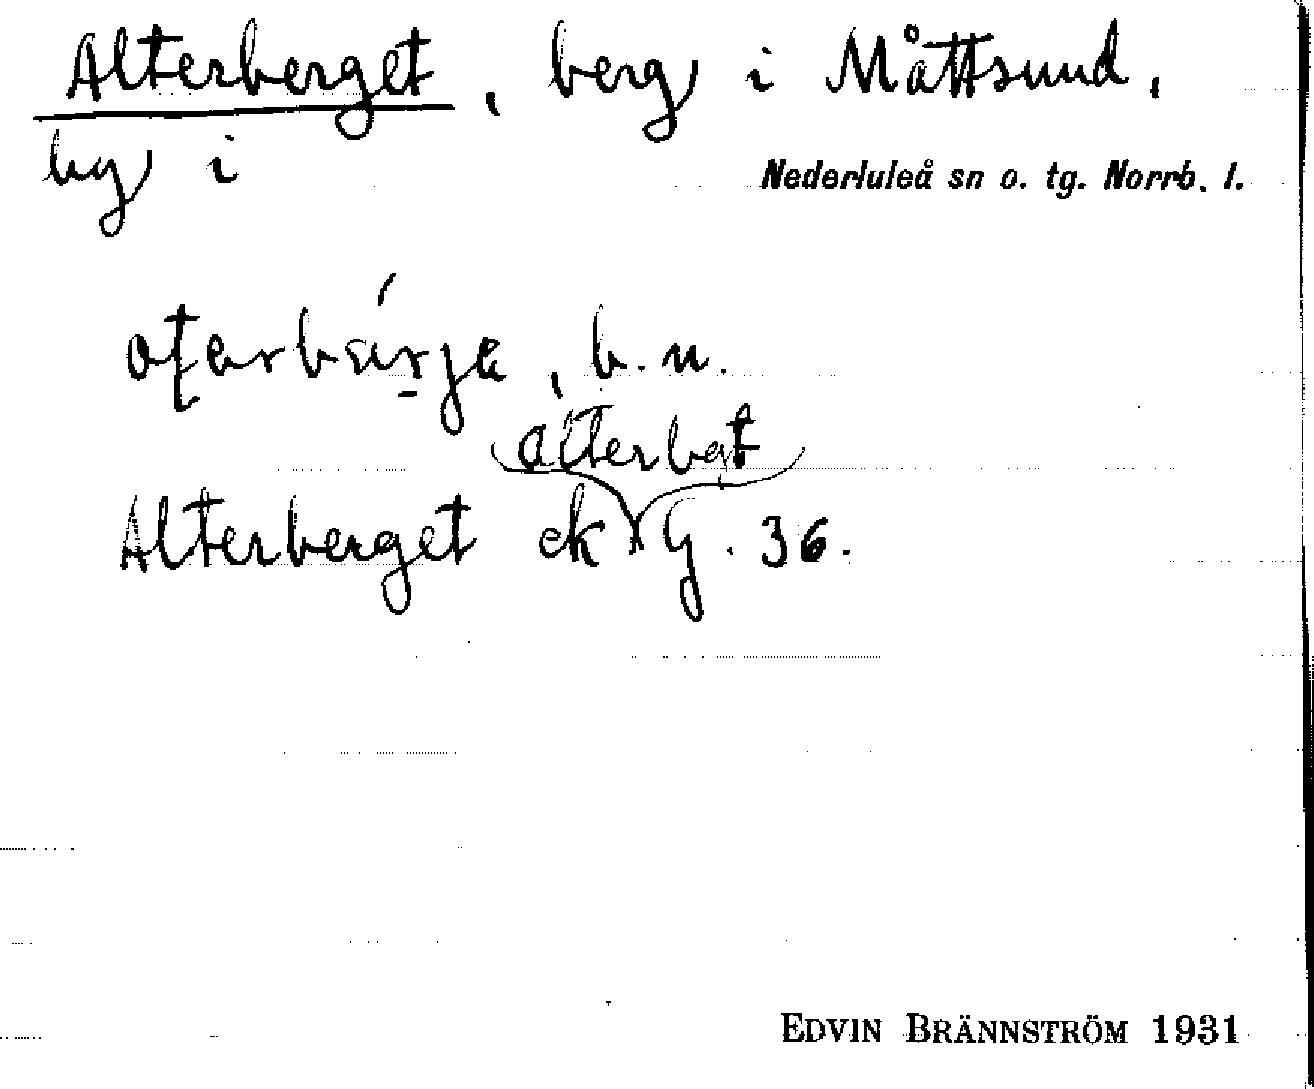 Alterberget, berg i Måttsund,
by i
Nederluleå sn o. tg. Norrb. l.
, b. n.
Alterbgt
Alterberget ek G. 36.
EDVIN BRÄNNSTRÖM 1931